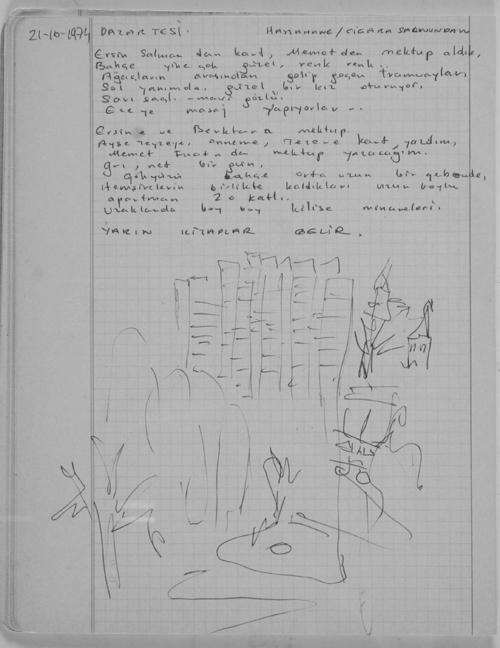 21-10-1974 PAZARTESİ. HASTAHANE/CİGARA SALONUNDAN
Ersin Salman dan kart, Memet den mektup aldık,
Bahçe yine çok güzel, renk renk..
Ağaçların arasından gelip geçen tramvayları
Sol yanımda, güzel bir kız oturuyor.
Sarı saçlı - mavi gözlü.
Ece ye masaj yapıyorlar...
Ersin e ve Berktara mektup.
Ayşe teyzeye, Anneme, Tezere kart yazdım,
Memet Fuat a da mektup yazacağım.
Gri, net bir gün,
Gökyüzü bahçe orta uzun bir
Hemşirelerin birlikte kaldıkları uzun boylu
apartman 20 katlı..
Uzaklarda boy boy kilise minareleri.
YARIN KİTAPLAR GELİR.